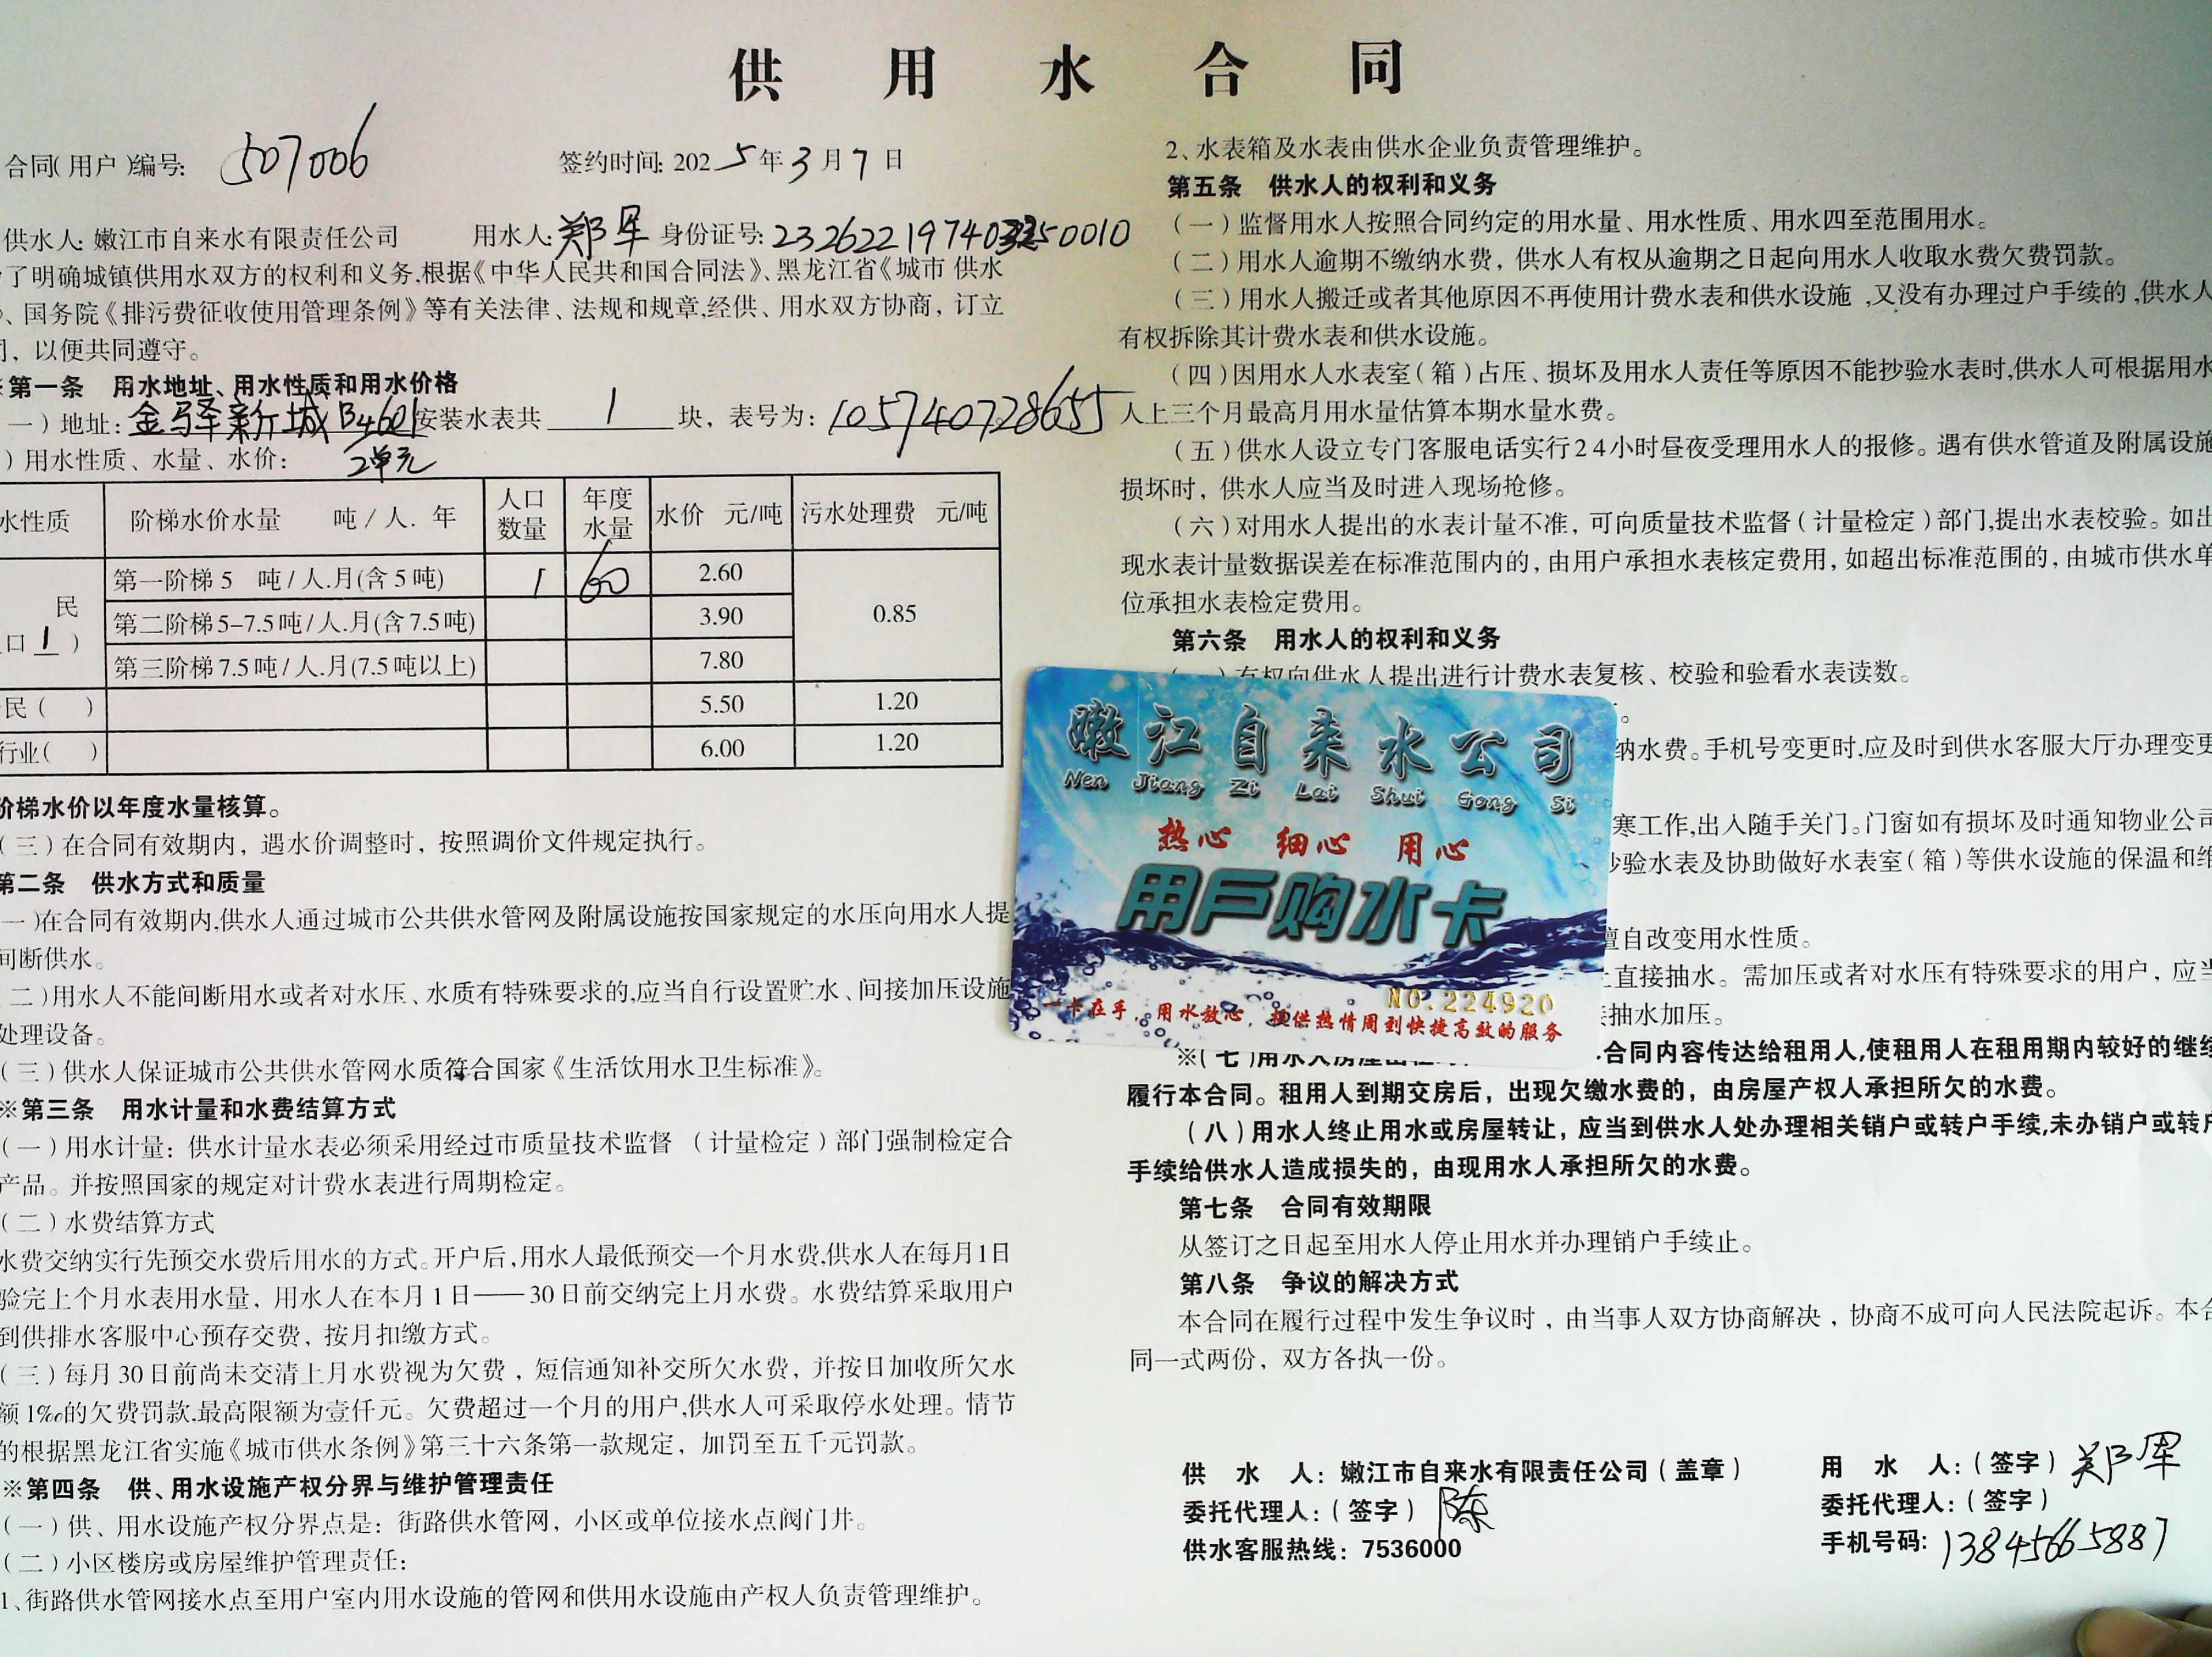 供用水合同
合同(用户)编号: 507006 签约时间: 2025年3月7日
供水人: 嫩江市自来水有限责任公司 用水人: 郑军 身份证号:
了明确城镇供用水双方的权利和义务,根据《中华人民共和国合同法》、黑龙江省《城市 供水
、国务院《排污费征收使用管理条例》等有关法律、法规和规章,经供、用水双方协商，订立
，以便共同遵守。
第一条 用水地址、用水性质和用水价格
一)地址: 金驿新城B4601 安装水表共 1 块，表号为: 105740728655
2单元
)用水性质、水量、水价:
水性质 阶梯水价水量 吨/人. 年 人口数量 年度水量 水价 元/吨 污水处理费 元/吨
民 口 1 ) 第一阶梯 5 吨/人.月(含5吨) 1 60 2.60 0.85
第二阶梯 5-7.5吨/人.月(含7.5吨) 3.90
第三阶梯 7.5吨/人.月(7.5吨以上) 7.80
民( ) 5.50 1.20
行业( ) 6.00 1.20
阶梯水价以年度水量核算。
(三)在合同有效期内，遇水价调整时，按照调价文件规定执行。
第二条 供水方式和质量
一)在合同有效期内,供水人通过城市公共供水管网及附属设施按国家规定的水压向用水人提
间断供水。
二)用水人不能间断用水或者对水压、水质有特殊要求的,应当自行设置贮水、间接加压设施
处理设备。
(三)供水人保证城市公共供水管网水质符合国家《生活饮用水卫生标准》。
※第三条 用水计量和水费结算方式
(一)用水计量：供水计量水表必须采用经过市质量技术监督 (计量检定)部门强制检定合
产品。并按照国家的规定对计费水表进行周期检定。
(二)水费结算方式
水费交纳实行先预交水费后用水的方式。开户后,用水人最低预交一个月水费,供水人在每月1日
验完上个月水表用水量，用水人在本月1日——30日前交纳完上月水费。水费结算采取用户
到供排水客服中心预存交费，按月扣缴方式。
(三)每月30日前尚未交清上月水费视为欠费，短信通知补交所欠水费，并按日加收所欠水
额1‰的欠费罚款,最高限额为壹仟元。欠费超过一个月的用户,供水人可采取停水处理。情节
的根据黑龙江省实施《城市供水条例》第三十六条第一款规定，加罚至五千元罚款。
※第四条 供、用水设施产权分界与维护管理责任
(一)供、用水设施产权分界点是：街路供水管网，小区或单位接水点阀门井。
(二)小区楼房或房屋维护管理责任:
1、街路供水管网接水点至用户室内用水设施的管网和供用水设施由产权人负责管理维护。
2、水表箱及水表由供水企业负责管理维护。
第五条 供水人的权利和义务
(一)监督用水人按照合同约定的用水量、用水性质、用水四至范围用水。
(二)用水人逾期不缴纳水费，供水人有权从逾期之日起向用水人收取水费欠费罚款。
(三)用水人搬迁或者其他原因不再使用计费水表和供水设施,又没有办理过户手续的,供水人
有权拆除其计费水表和供水设施。
(四)因用水人水表室(箱)占压、损坏及用水人责任等原因不能抄验水表时,供水人可根据用水
人上三个月最高月用水量估算本期水量水费。
(五)供水人设立专门客服电话实行24小时昼夜受理用水人的报修。遇有供水管道及附属设施
损坏时，供水人应当及时进入现场抢修。
(六)对用水人提出的水表计量不准，可向质量技术监督(计量检定)部门,提出水表校验。如出
现水表计量数据误差在标准范围内的，由用户承担水表核定费用，如超出标准范围的，由城市供水单
位承担水表检定费用。
第六条 用水人的权利和义务
)有权向供水人提出进行计费水表复核、校验和验看水表读数。
。
纳水费。手机号变更时,应及时到供水客服大厅办理变更
寒工作,出入随手关门。门窗如有损坏及时通知物业公司
抄验水表及协助做好水表室(箱)等供水设施的保温和维
擅自改变用水性质。
上直接抽水。需加压或者对水压有特殊要求的用户，应当
接抽水加压。
※(七)用水人房屋出 合同内容传达给租用人,使租用人在租用期内较好的继续
履行本合同。租用人到期交房后，出现欠缴水费的，由房屋产权人承担所欠的水费。
(八)用水人终止用水或房屋转让，应当到供水人处办理相关销户或转户手续,未办销户或转户
手续给供水人造成损失的，由现用水人承担所欠的水费。
第七条 合同有效期限
从签订之日起至用水人停止用水并办理销户手续止。
第八条 争议的解决方式
本合同在履行过程中发生争议时，由当事人双方协商解决，协商不成可向人民法院起诉。本合
同一式两份，双方各执一份。
供水人：嫩江市自来水有限责任公司(盖章)
委托代理人：(签字) 陈
供水客服热线：7536000
用水人：(签字) 郑军
委托代理人：(签字)
手机号码: 13845665887
嫩江自来水公司
Nen Jiang Zi Lai Shui Gong Si
热心 细心 用心
用户购水卡
NO.224920
一卡在手，用水放心，提供热情周到快捷高效的服务